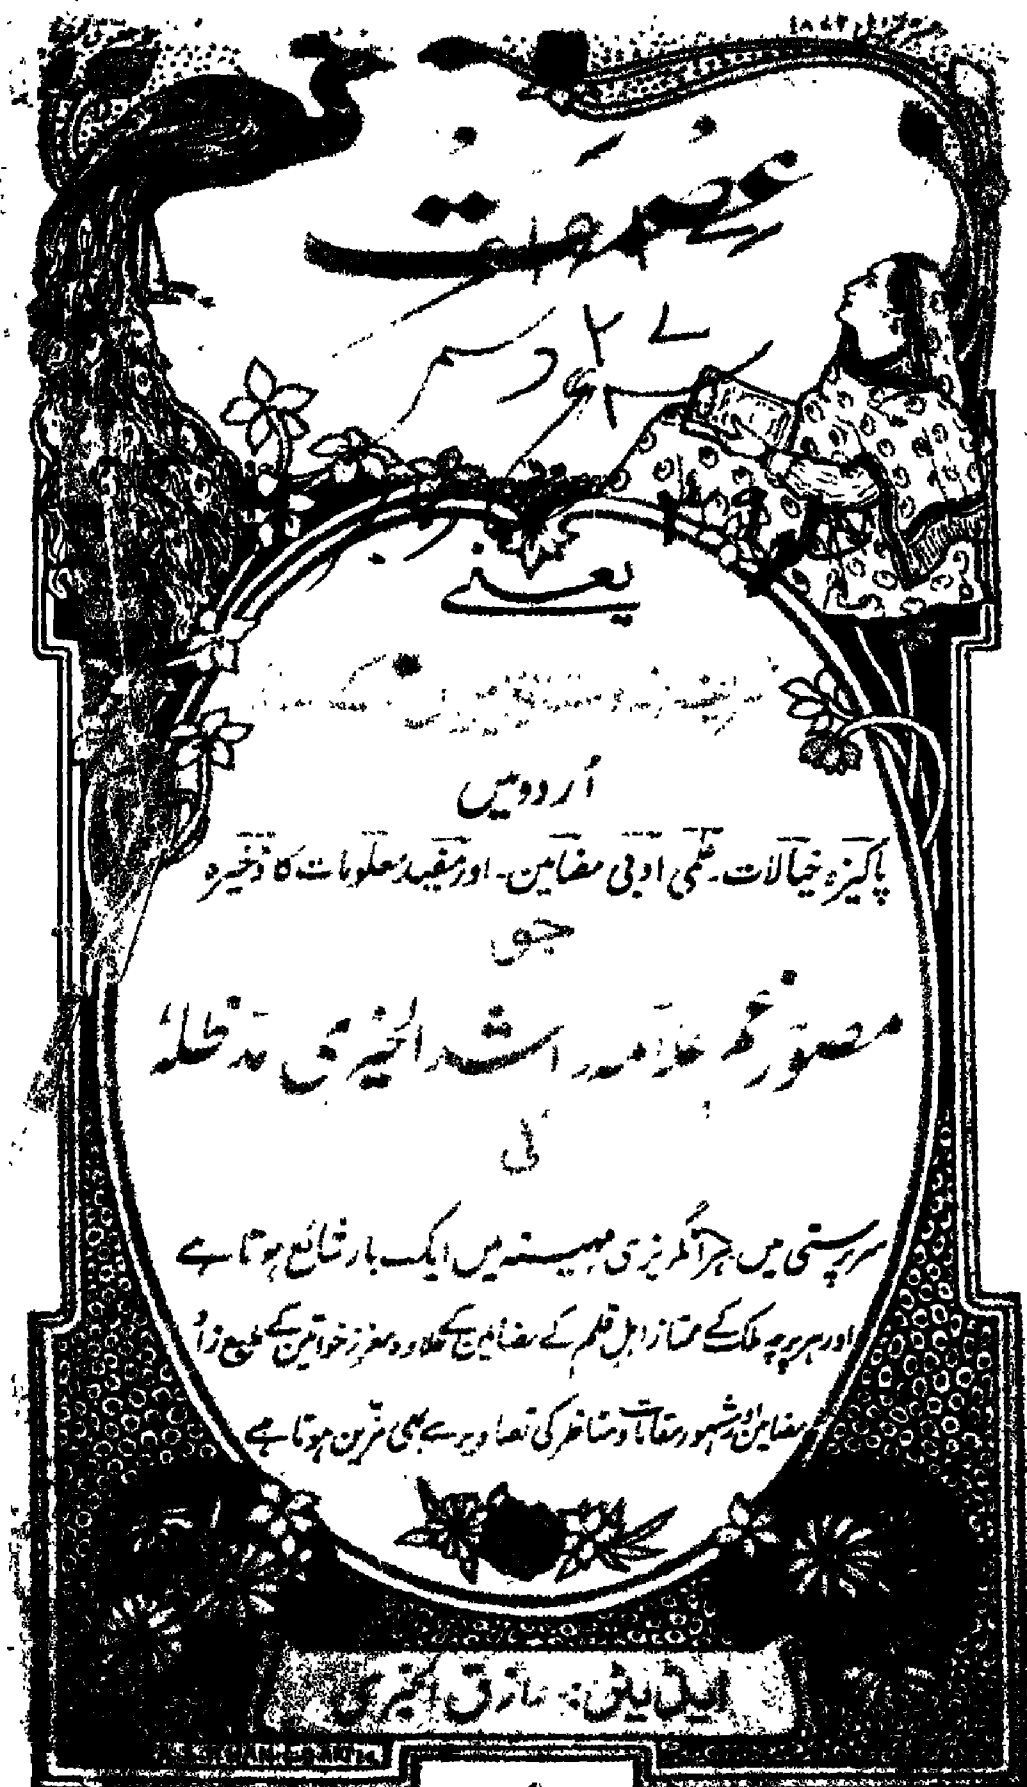 عصمت
یعنی
اُردو میں
پاکیزہ خیالات۔ علمی ادبی مضامین۔ اور مفید معلومات کا ذخیرہ
جو
مصوّرِ غم علامہ راشد الخیری مدظلہٗ
کی
سرپرستی میں ہر انگریزی مہینہ میں ایک بار شائع ہوتا ہے
اور ہر پرچہ ملک کے ممتاز اہلِ قلم کے مضامین کے علاوہ معزز خواتین کے طبع زاد
مضامین اور مشہور مقامات و مناظر کی تصاویر سے بھی مزین ہوتا ہے
ایڈیٹر: رازق الخیری